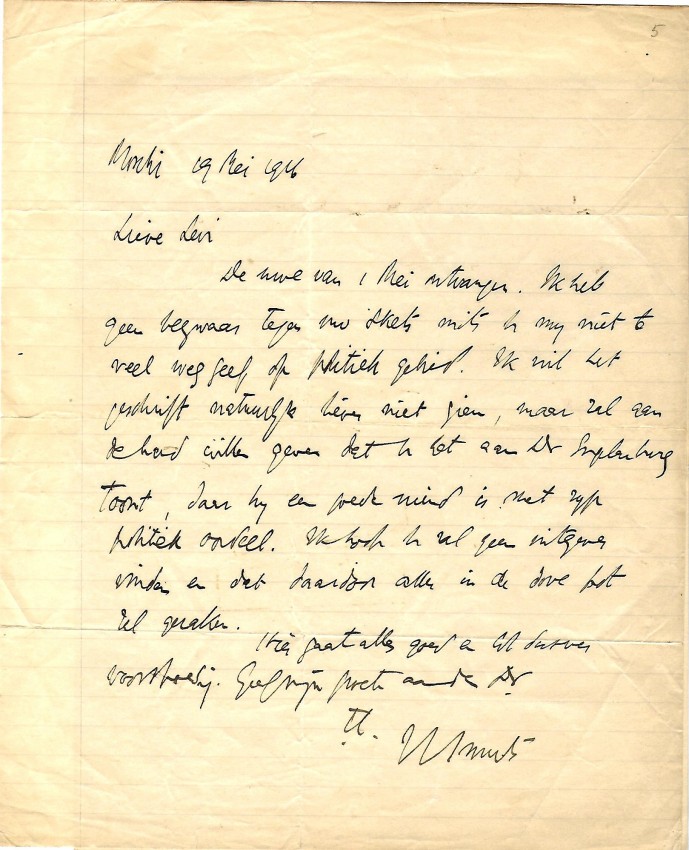 5
Moshi 19 Mei 1916
Lieve Levi
De uwe van 1 Mei ontvangen. Ik heb
geen bezwaar tegen uw skets mits U my niet te
veel weg geef op politiek gebied. Ik wil het
geschrift natuurlyk liever niet zien, maar zal aan
de hand willen geven dat U het aan Dr
toont, daar hy een goede vriend is met zyn
politiek oordeel. Ik hoop U zal geen uitgever
vinden en dat daardoor alles in de dove pot
zal geraken.
Hier gaat alles goed en
voorspoedig. Geef mijn groete aan de Dr.
t.t.
JCSmuts